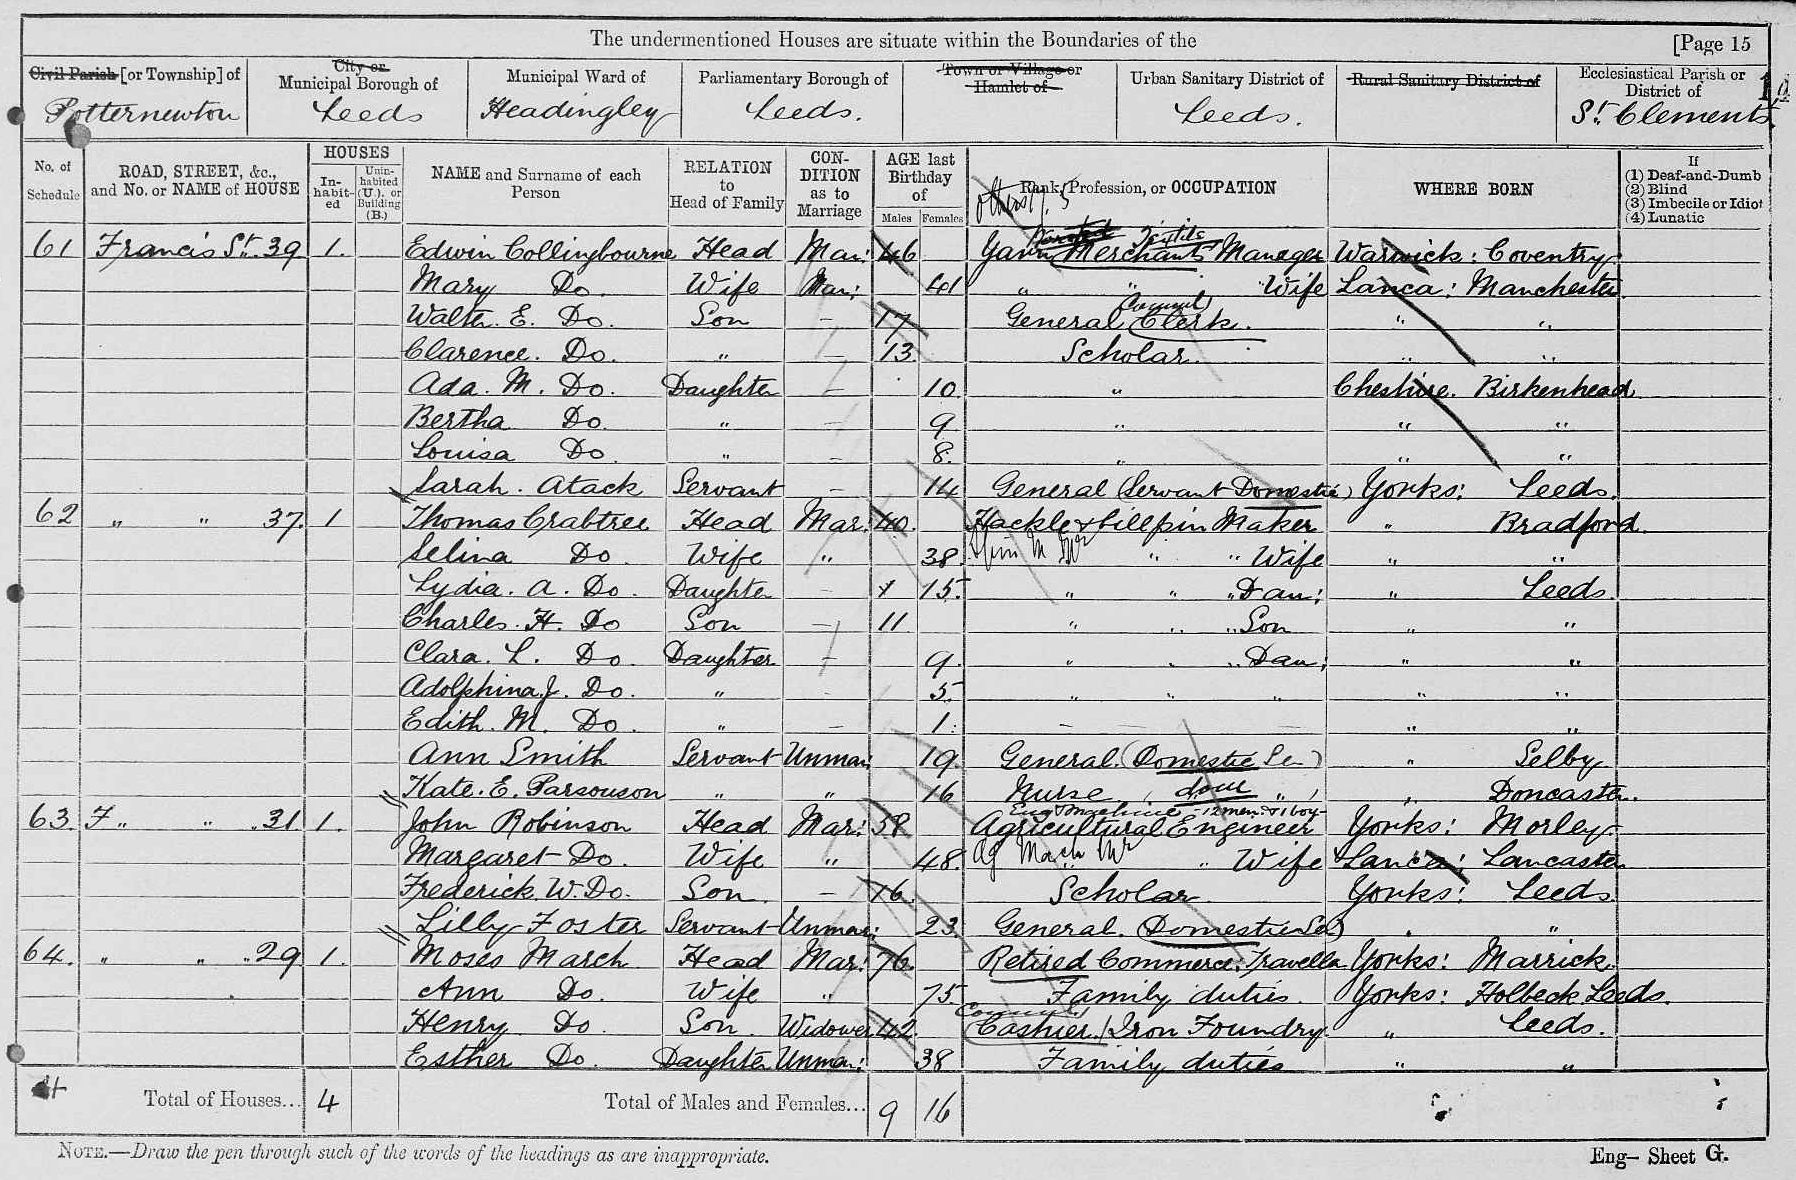 The undermentioned Houses are situate within the Boundaries of the [Page 15
Civil Parish [or Township] of Potternewton
City or Municipal Borough of Leeds
Municipal Ward of Headingley
Parliamentary Borough of Leeds.
Town or Village or Hamlet of
Urban Sanitary District of Leeds.
Rural Sanitary District of
Ecclesiastical Parish or District of St. Clements.
No. of Schedule
ROAD, STREET, &c., and No. or NAME of HOUSE
HOUSES
In-habit-ed
Unin-habited (U.), or Building (B.)
NAME and Surname of each Person
RELATION to Head of Family
CON-DITION as to Marriage
AGE last Birthday of
Males Females
Rank, Profession, or OCCUPATION
WHERE BORN
If (1) Deaf-and-Dumb (2) Blind (3) Imbecile or Idiot (4) Lunatic
61 Francis St. 39 1. Edwin Collingbourne Head Mar: 46 Yarn Merchants Manager Warwick: Coventry
Mary Do. Wife Mar: 41 " " Wife Lanca: Manchester
Walter. E. Do. Son – 17 General Clerk. " "
Clarence. Do. " – 13 Scholar. " "
Ada. M. Do. Daughter – 10 " Cheshire. Birkenhead
Bertha Do. " – 9 " " "
Louisa Do. " – 8. " " "
Sarah. Atack Servant – 14 General (Servant Domestic) Yorks: Leeds.
62 " " 37. 1 Thomas Crabtree Head Mar: 40. Hackle & Gillpin Maker " Bradford
Selina Do. Wife " 38. " " Wife " "
Lydia. A. Do. Daughter – 15. " " " Dau: " Leeds.
Charles. H. Do Son – 11 " " " Son " "
Clara. L. Do. Daughter – 9. " " " Dau: " "
Adolphina J. Do. " – 5. " " " " "
Edith. M. Do. " – 1. – – " "
Ann Smith Servant Unmar: 19. General. (Domestic Se) " Selby
Kate. E. Parsonson " " 16 Nurse ( dom " ) " Doncaster.
Eng & Machine – 12 men & 1 boy
63. F " " " 31 1. John Robinson Head Mar: 59. Agricultural Engineer Yorks: Morley
Margaret Do. Wife " 48. Ag Mach Mr " Wife Lanca: Lancaster
Frederick. W. Do. Son. – 16. Scholar. Yorks: Leeds
Lilly Foster Servant Unmar: 23. General. (Domestic Se) " "
64. " " " 29 1. Moses March Head Mar: 76. Retired Commerc: Traveller Yorks: Marrick.
Ann Do. Wife " 75 Family duties. Yorks: Holbeck Leeds.
Henry Do. Son. Widower 42. Cashier / Iron Foundry. " Leeds.
Esther Do. Daughter Unmar: 38 Family duties " "
Total of Houses... 4 Total of Males and Females... 9 16
NOTE.—Draw the pen through such of the words of the headings as are inappropriate.
Eng– Sheet G.